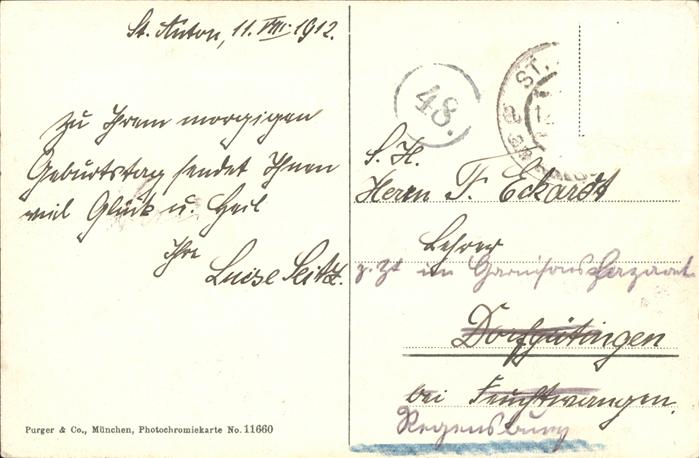 St. Anton, 11. VIII. 1912.
Zu Ihrem morgigen
Geburtstag sendet Ihnen
viel Glück u. Heil
Ihre
Luise Seitz.
Purger & Co., München, Photochromiekarte No. 11660
48.
ST.
S. H.
Herrn F. Eckardt
Lehrer
z. Zt im Garnisonslazarett
Dorfgütingen
bei Feuchtwangen.
Regensburg